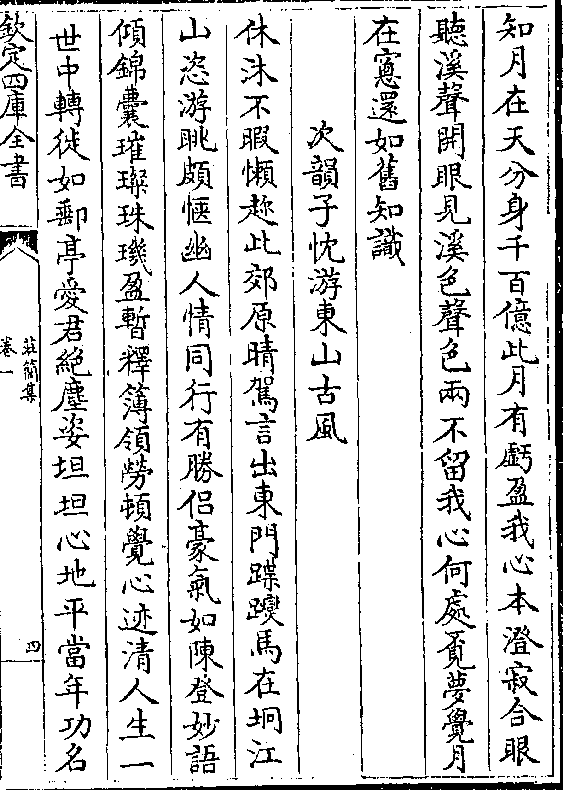 知月在天分身千百億此月有虧盈我心本澄寂合眼
聽溪聲開眼見溪色聲色兩不留我心何處覓夢覺月
在窻還如舊知識
次韻子忱游東山古風
休沐不暇懶趂此郊原晴駕言出東門蹀躞馬在坰江
山恣游眺頗愜幽人情同行有勝侣豪氣如陳登妙語
傾錦囊璀璨珠璣盈暫釋簿領勞頓覺心迹清人生一
世中轉徙如郵亭愛君絶塵姿坦坦心地平當年功名
欽定四庫全書
莊簡集
卷一
四